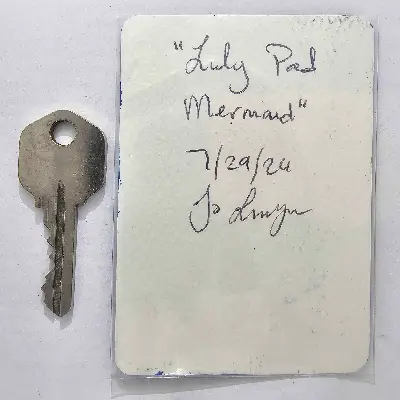 "Lily Pad
Mermaid"
7/29/24
Jo